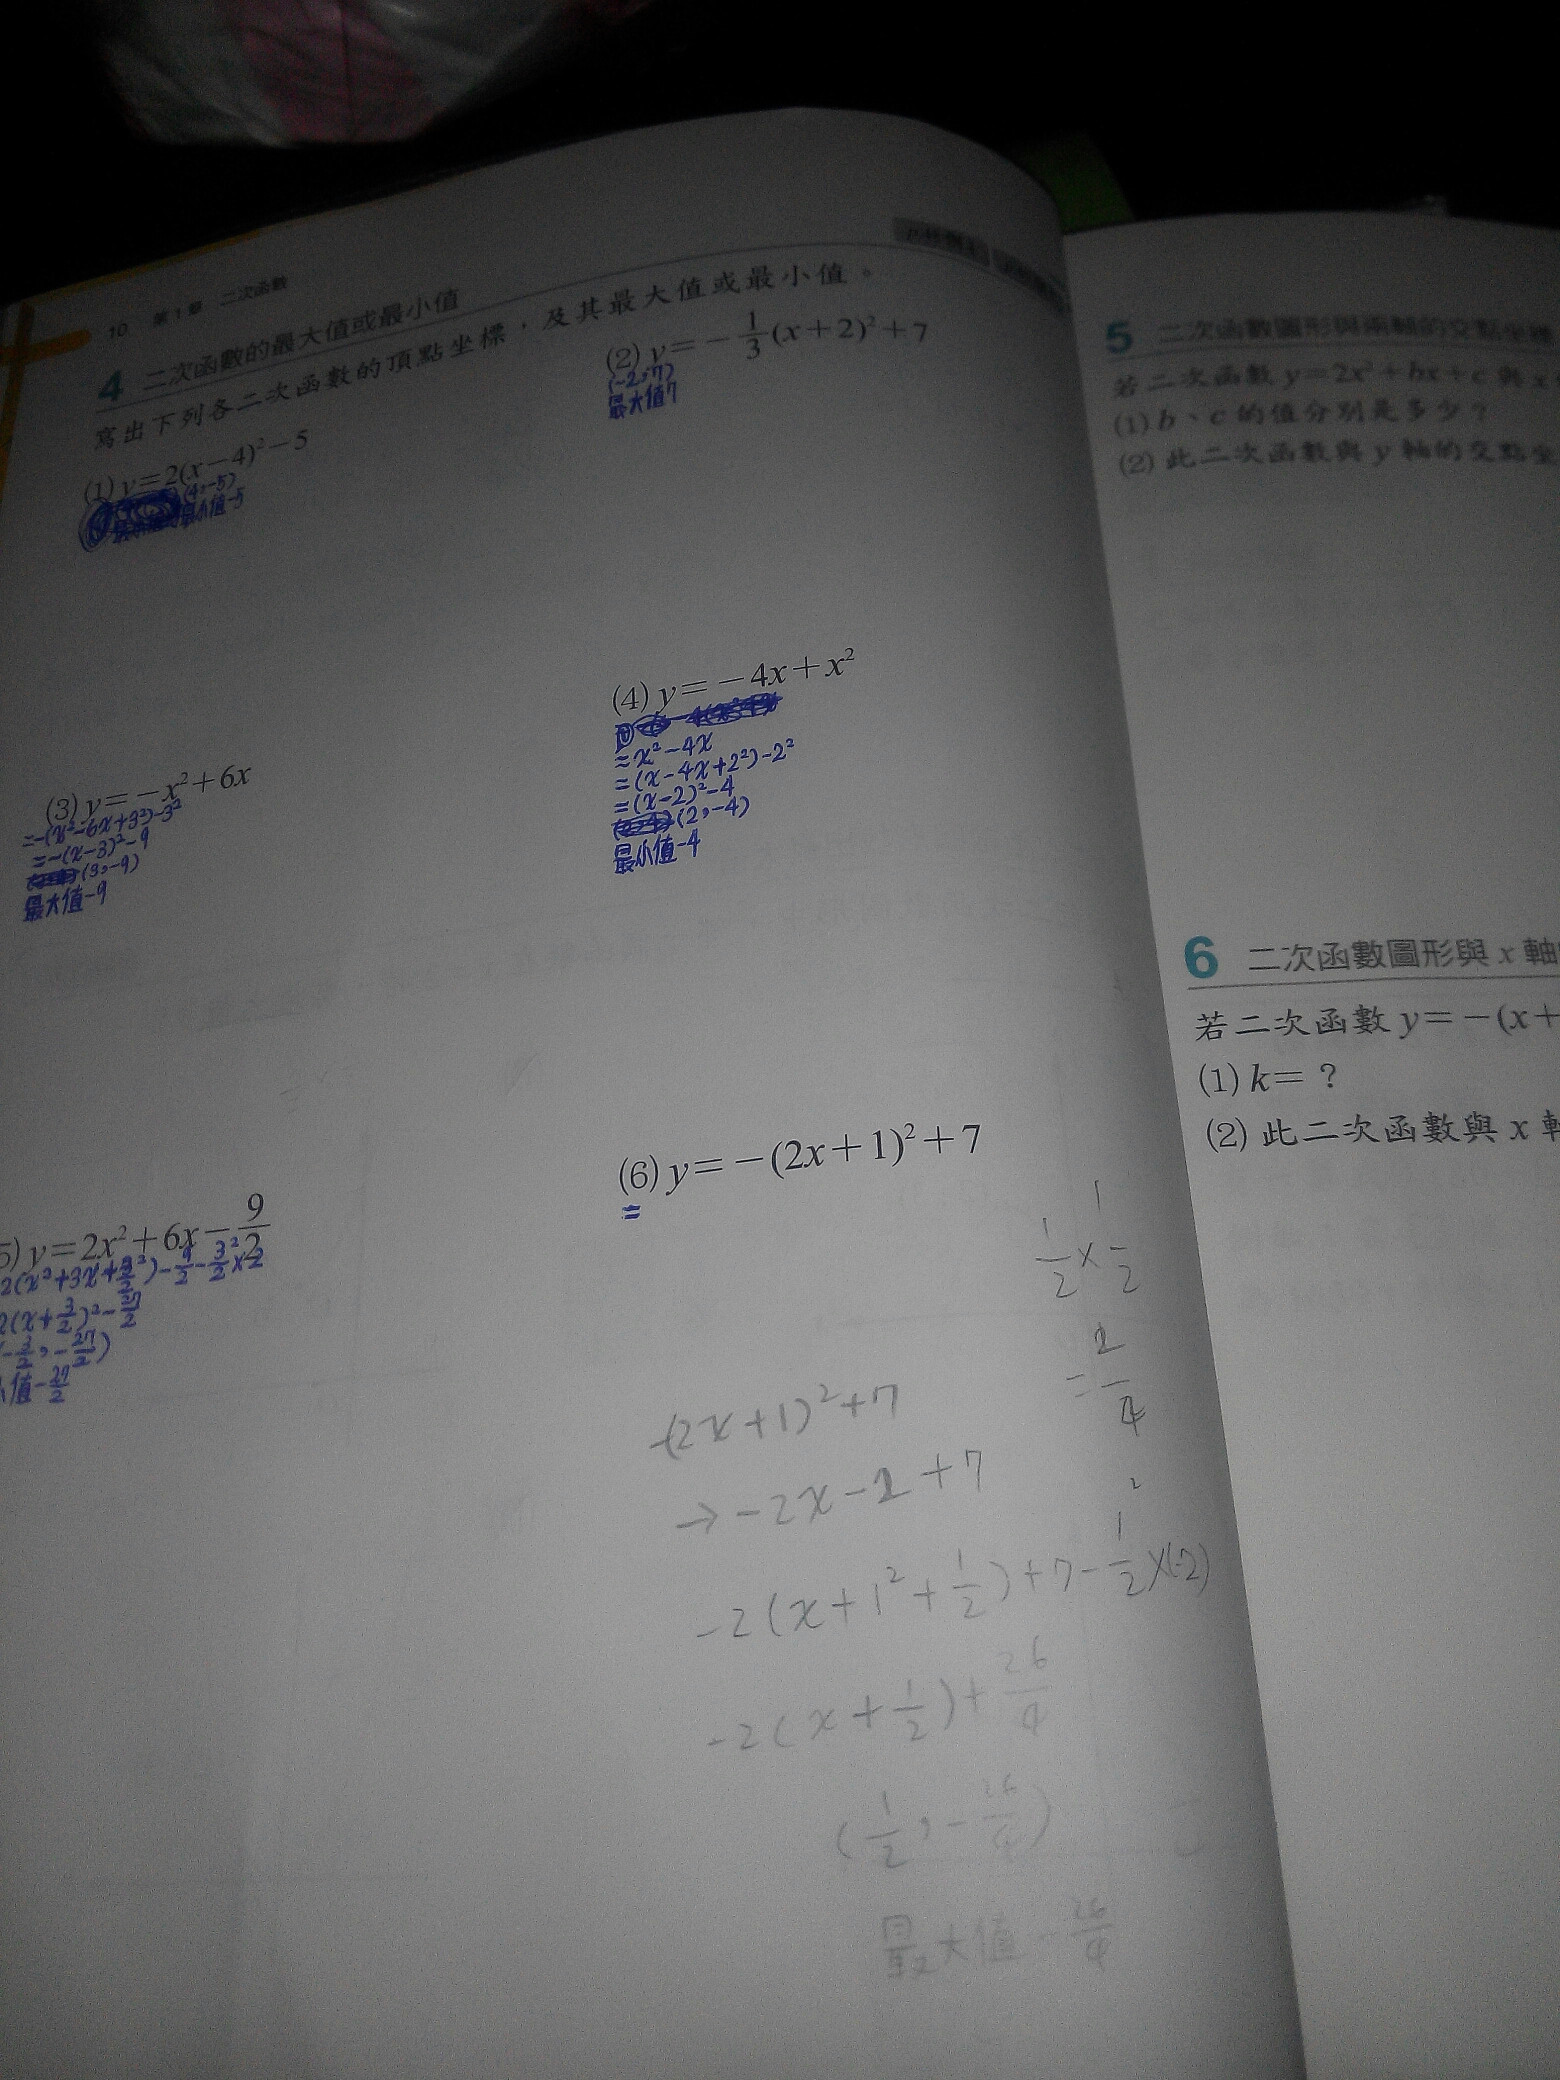 10 第1章 二次函數
4 二次函數的最大值或最小值
寫出下列各二次函數的頂點坐標，及其最大值或最小值。
(1) y=2(x-4)²-5
(4,-5)
最小值-5
(2) y=-1/3(x+2)²+7
(-2,7)
最大值7
(3) y=-x²+6x
=-(x²-6x+3²)-3²
=-(x-3)²-9
(3,-9)
最大值-9
(4) y=-4x+x²
=x²-4x
=(x-4x+2²)-2²
=(x-2)²-4
(2,-4)
最小值-4
5) y=2x²+6x-9/2
2(x²+3x+3/2²)-9/2-3/2²×2
2(x+3/2)²-27/2
-3/2,-27/2)
值-27/2
(6) y=-(2x+1)²+7
=
1/2×1/2
=1/4
-(2x+1)²+7
→-2x-1+7
-2(x+1²+1/2)+7-1/2²×(-2)
-2(x+1/2)+26/4
(1/2,-26/4)
最大值-26/4
5 二次函數圖形與兩軸的交點坐標
若二次函數 y=2x²+bx+c 與 x
(1) b、c 的值分別是多少？
(2) 此二次函數與 y 軸的交點坐
6 二次函數圖形與 x 軸
若二次函數 y=-(x+
(1) k=？
(2) 此二次函數與 x 軸